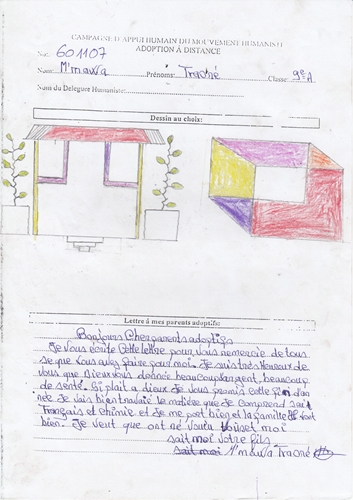 CAMPAGNE D'APPUI HUMAIN DU MOUVEMENT HUMANIST
ADOPTION À DISTANCE
No: 601107
Nom: M'mawa Prénoms: Traoré Classe: 9è A
Nom du Délégué Humaniste:
Dessin au choix:
Lettre à mes parents adoptifs:
Bonjours Cher parents adoptifs
Je vous écrite cette lettre pour vous remercie de tous
se que vous avez faire pour moi. Je suis très Heureux de
vous que Dieu vous donnée beaucoup d'argent, beaucoup
de santé. Si plait a dieux Je vous promis cette fin d'an
née Je vais bien travaié le matière que Je comprend sait
Français et chimie et Je me port bien et la famille vont
bien. Je veut que ont ne vont moi
sait moi votre fils
sait moi M'mawa Traoré